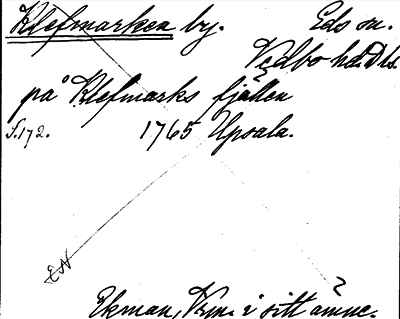 Klefmarken by. Eds sn.
Vedbo hd. Dls.
på Klefmarks fjällen
S. 172. 1765 Upsala.
EN
Ekman, Vrm. i sitt ämne.